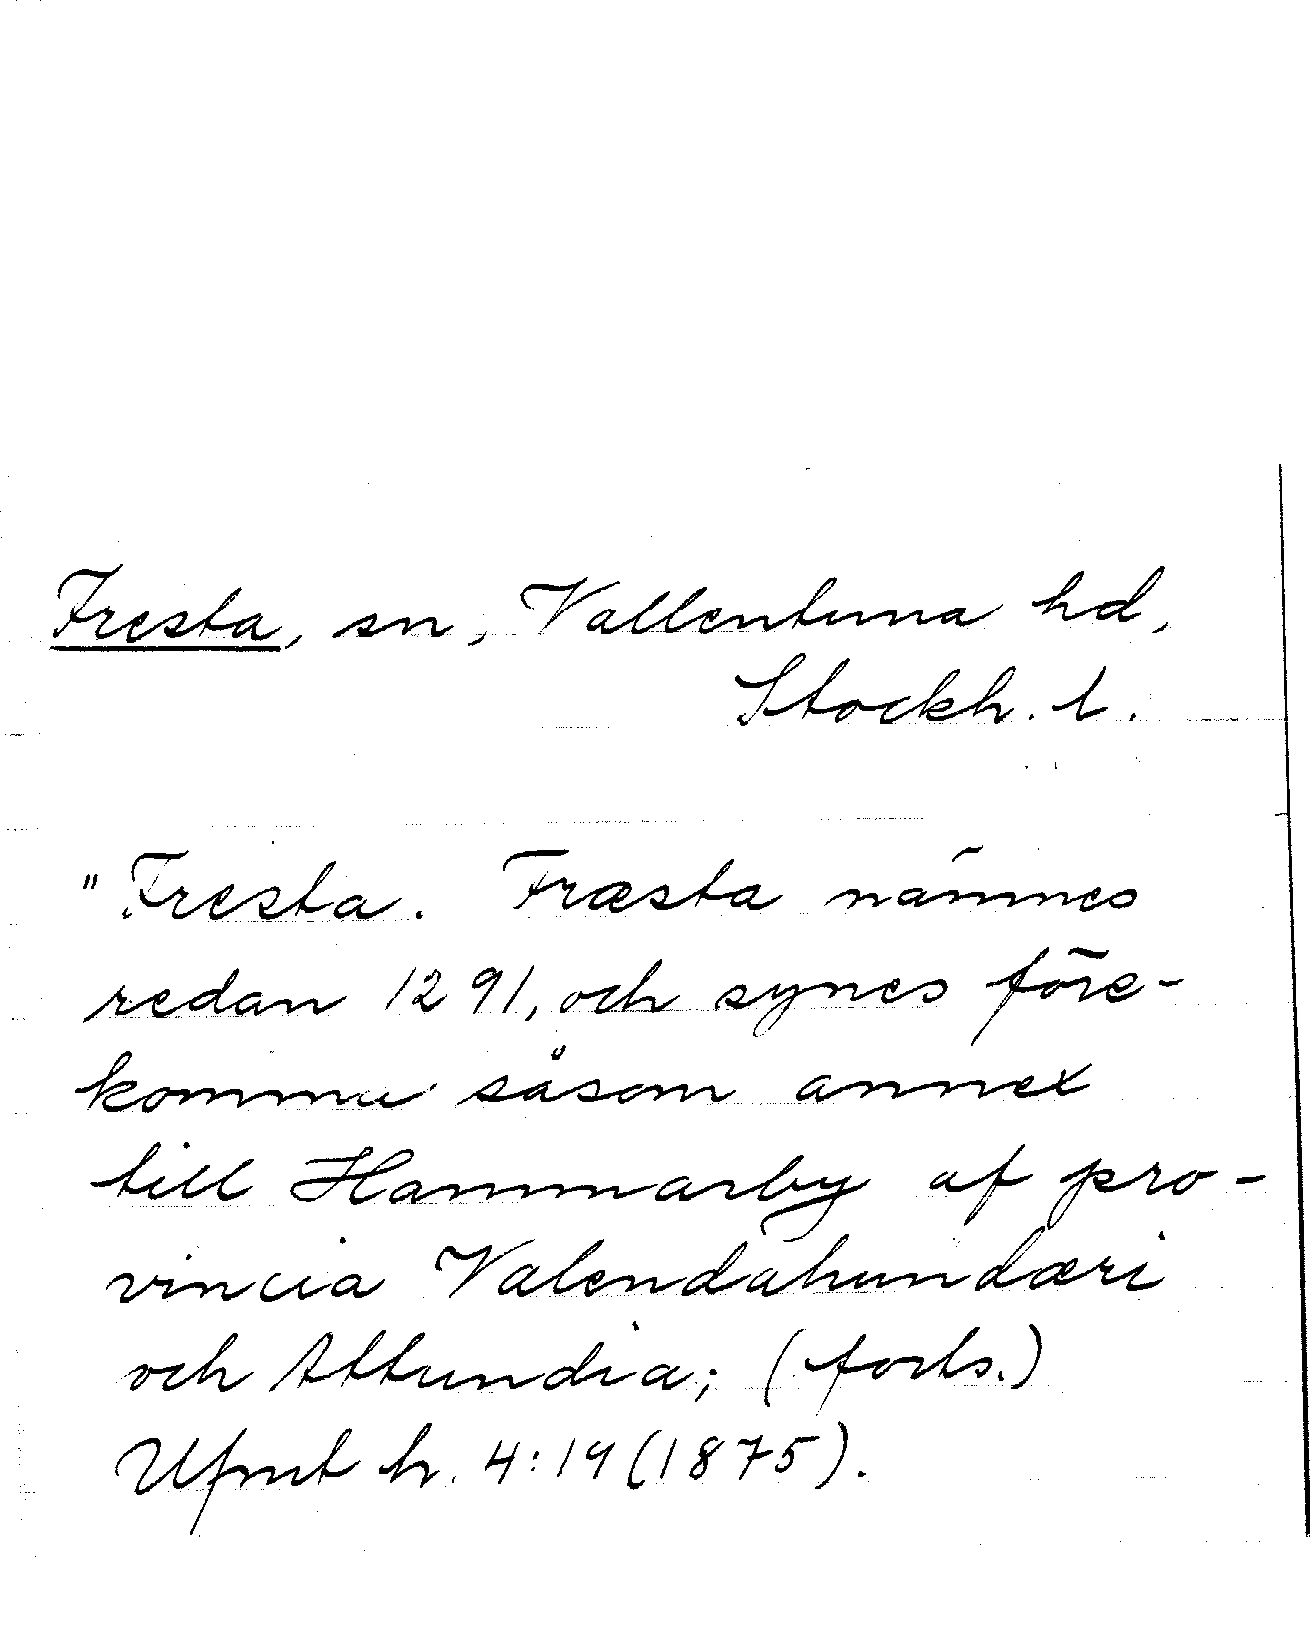 Fresta, sn, Vallentuna hd,
Stockh. l.
"Fresta. Fræsta nämnes
redan 1291, och synes före-
komma såsom annex
till Hammarby af pro-
vincia Valendahundæri
och Attundia; (forts.)
Ufmt h. 4:19 (1875).